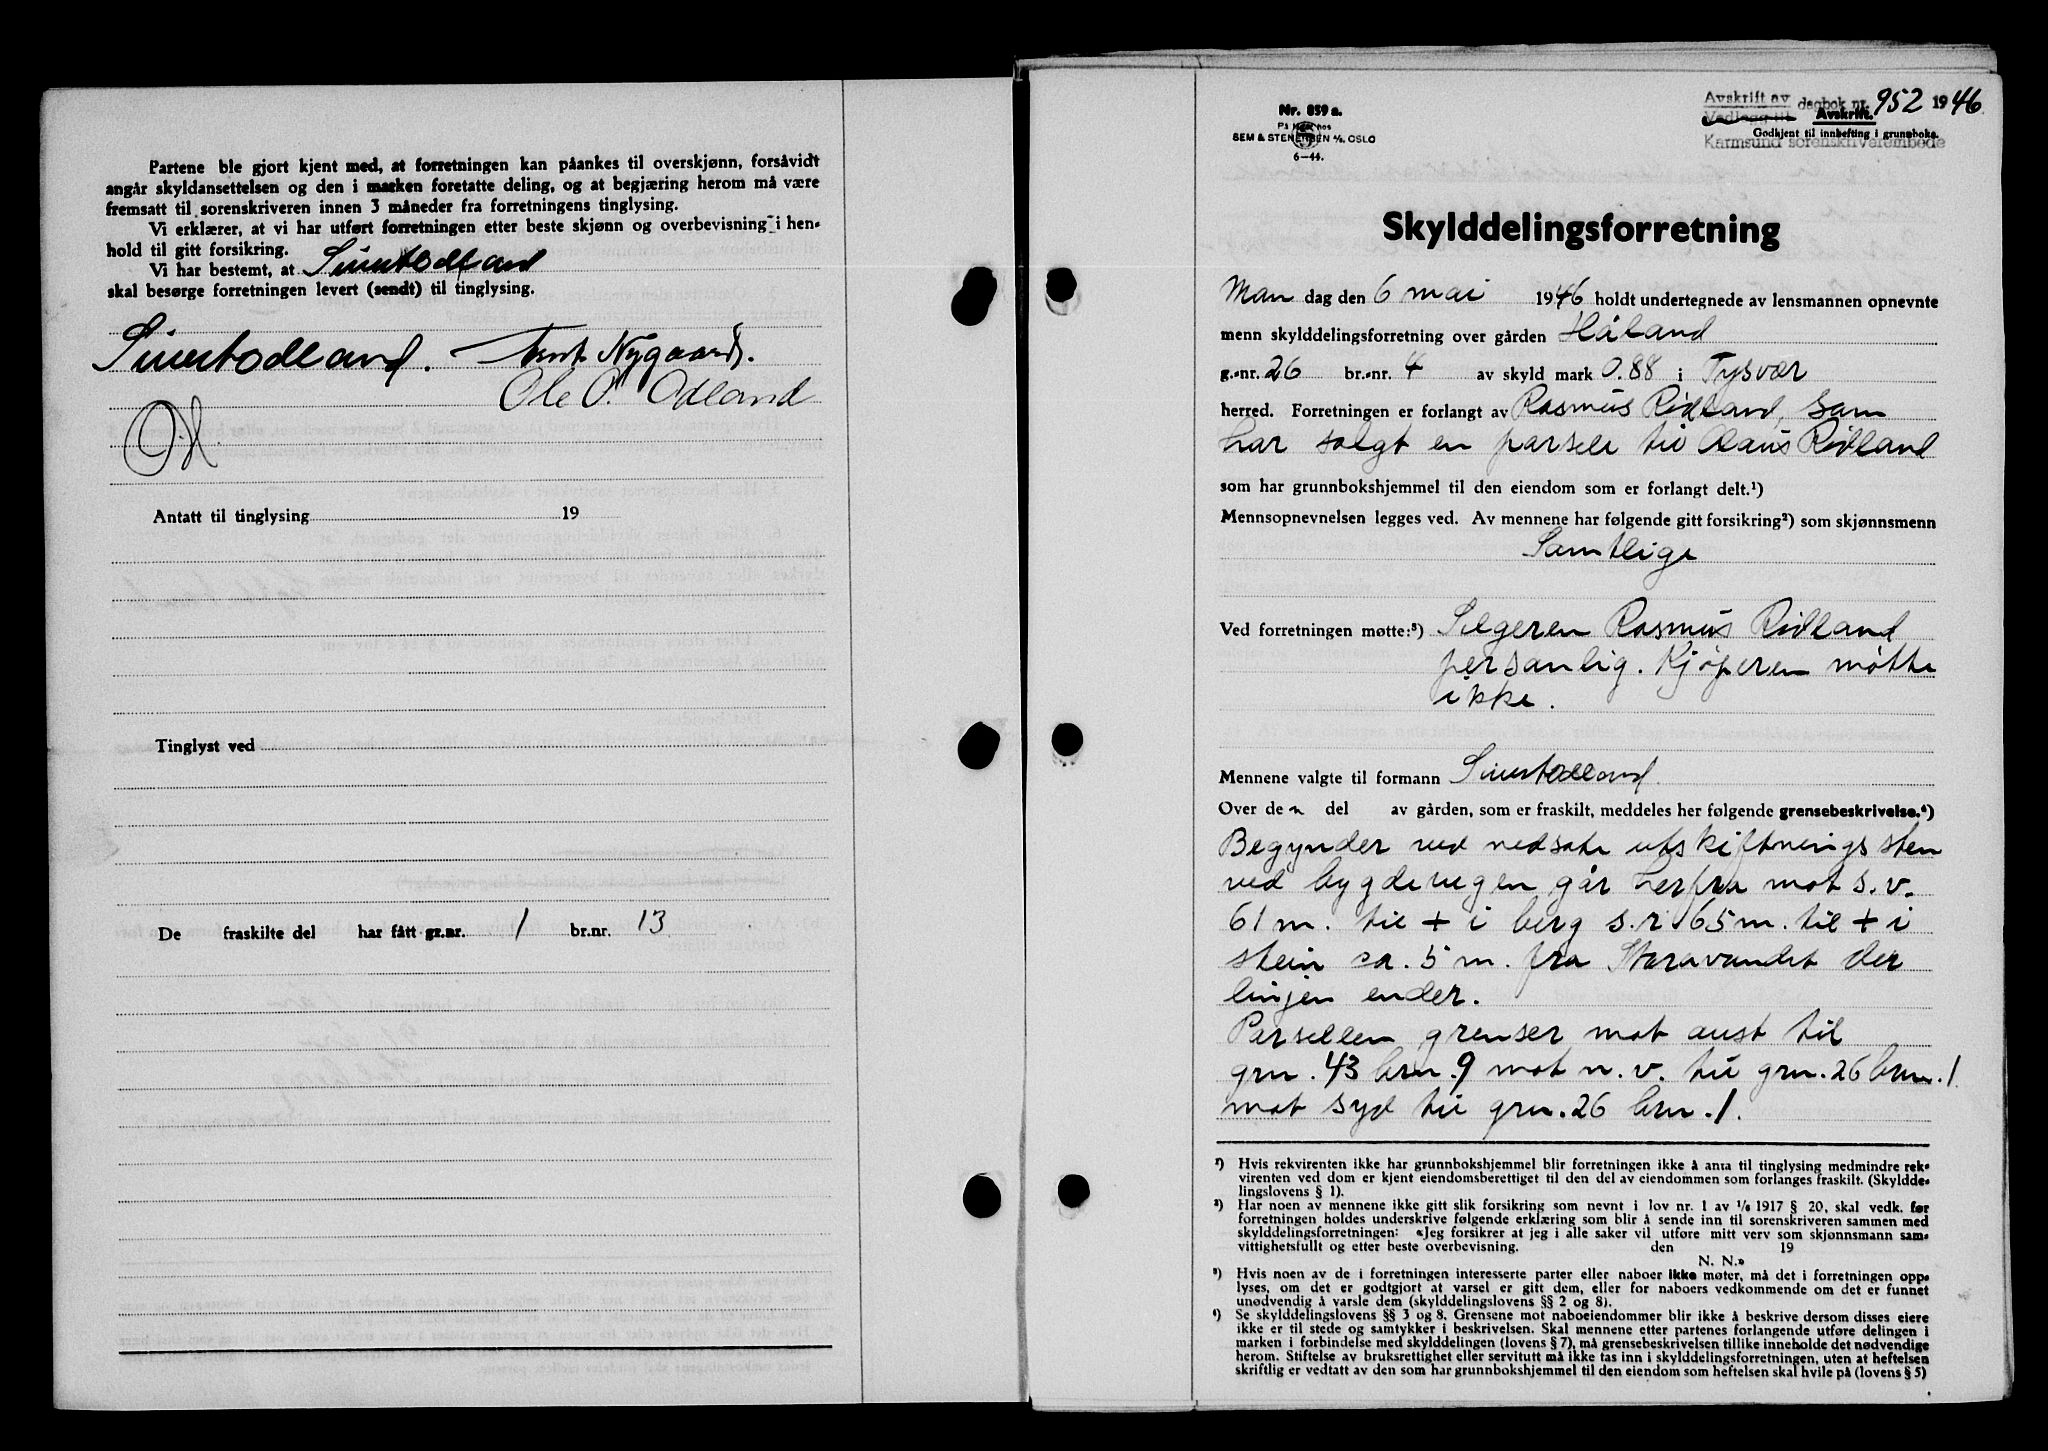 Partene ble gjort kjent med, at forretningen kan påankes til overskjønn, forsåvidt
angår skyldansettelsen og den i marken foretatte deling, og at begjæring herom må være
fremsatt til sorenskriveren innen 3 måneder fra forretningens tinglysing.
Vi erklærer, at vi har utført forretningen etter beste skjønn og overbevisning i hen-
hold til gitt forsikring.
Vi har bestemt, at Sivert Odland
skal besørge forretningen levert (sendt) til tinglysing.
Sivert Odland. Nygaard.
Ole O. Odland
Antatt til tinglysing 19
Tinglyst ved
De fraskilte del har fått gr.nr. 1 br.nr. 13
Nr. 859 a.
På lager hos
SEM & STENERSEN A/S, OSLO
6-44.
Avskrift av dagbok nr. 952 1946
Vedlegg til Avskrift.
Godkjent til innhefting i grunnboka.
Karmsund sorenskriverembede
Skylddelingsforretning
Man dag den 6 mai 1946 holdt undertegnede av lensmannen opnevnte
menn skylddelingsforretning over gården Håland
g.-nr. 26 br.-nr. 4 av skyld mark 0.88 i Tysvær
herred. Forretningen er forlangt av Rasmus Rødland, som
har solgt en parsell til Olaus Rødland
som har grunnbokshjemmel til den eiendom som er forlangt delt.¹)
Mennsopnevnelsen legges ved. Av mennene har følgende gitt forsikring²) som skjønnsmenn
Samtlige
Ved forretningen møtte:³) Selgeren Rasmus Rødland
personlig. Kjøperen møtte
ikke.
Mennene valgte til formann Sivert Odland.
Over den del av gården, som er fraskilt, meddeles her følgende grensebeskrivelse.⁴)
Begynder ved nedsate utskiftnings sten
ved bygdevegen går herfra mot s.v.
61 m. til + i berg s.v. 65 m. til + i
stein ca. 5 m. fra Storavandet der
linjen ender.
Parsellen grenser mot aust til
grn. 43 brn. 9 mot n.v. til grn. 26 brn. 1
mot syd til grn. 26 brn. 1.
¹) Hvis rekvirenten ikke har grunnbokshjemmel blir forretningen ikke å anta til tinglysing medmindre rek-
virenten ved dom er kjent eiendomsberettiget til den del av eiendommen som forlanges fraskilt. (Skyldde-
lingslovens § 1).
²) Har noen av mennene ikke gitt slik forsikring som nevnt i lov nr. 1 av 1/6 1917 § 20, skal vedk. før
forretningen holdes underskrive følgende erklæring som blir å sende inn til sorenskriveren sammen med
skylddelingsforretningen: «Jeg forsikrer at jeg i alle saker vil utføre mitt verv som skjønnsmann sam-
vittighetsfullt og etter beste overbevisning. den 19
N. N.»
³) Hvis noen av de i forretningen interesserte parter eller naboer ikke møter, må det i forretningen opp-
lyses, om det er godtgjort at varsel er gitt dem, eller for naboers vedkommende om det er funnet
unødvendig å varsle dem (skylddelingslovens §§ 2 og 8).
⁴) Se skylddelingslovens §§ 3 og 8. Grensene mot naboeiendommer blir ikke å beskrive dersom disses eiere
ikke er til stede og samtykker i beskrivelsen. Skal mennene etter partenes forlangende utføre delingen i
marken i forbindelse med skylddelingen (lovens § 7), må grensebeskrivelsen tillike inneholde det nødvendige
herom. Stiftelse av bruksrettighet eller servitutt må ikke tas inn i skylddelingsforretningen, uten at heftelsen
skriftlig er vedtatt av den som har grunnbokshjemmel til den eiendom som heftelsen skal hvile på (lovens § 5)